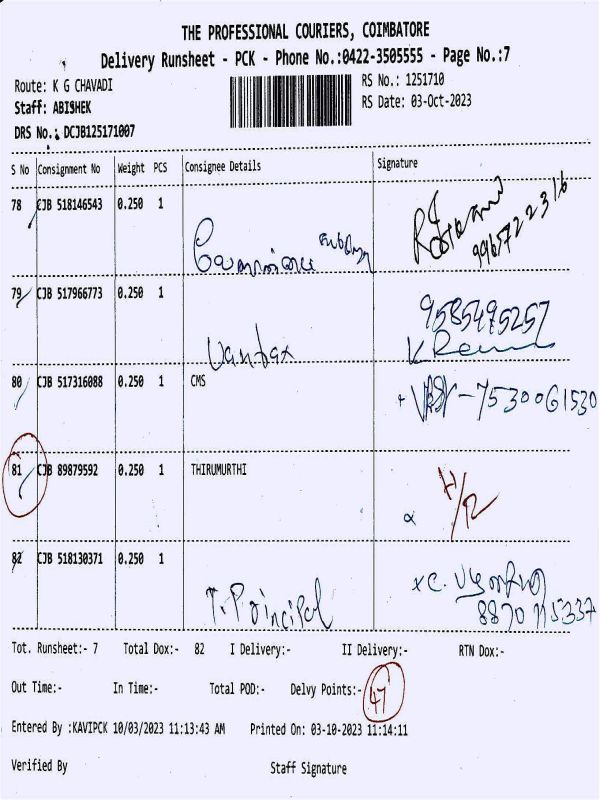 THE PROFESSIONAL COURIERS, COIMBATORE
Delivery Runsheet - PCK - Phone No.:0422-3505555 - Page No.:7
Route: K G CHAVADI
RS No.: 1251710
Staff: ABISHEK
RS Date: 03-Oct-2023
DRS No.: DCJB125171007
S No Consignment No Weight PCS Consignee Details Signature
78 CJB 518146543 0.250 1
9965722316
79 CJB 517966773 0.250 1
9585495257
Vantax
80 CJB 517316088 0.250 1 CMS
7530061530
81 CJB 89879592 0.250 1 THIRUMURTHI
H/R
82 CJB 518130371 0.250 1
T. Principal
8870115337
Tot. Runsheet:- 7 Total Dox:- 82 I Delivery:- II Delivery:- RTN Dox:-
Out Time:- In Time:- Total POD:- Delvy Points:- 47
Entered By :KAVIPCK 10/03/2023 11:13:43 AM Printed On: 03-10-2023 11:14:11
Verified By Staff Signature